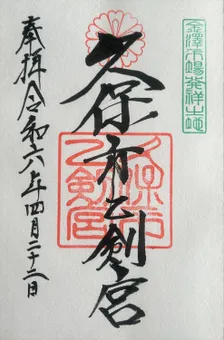 金澤市場発祥之地
久保市乙剣宮
久保市乙剣宮
奉拝令和六年四月二十二日